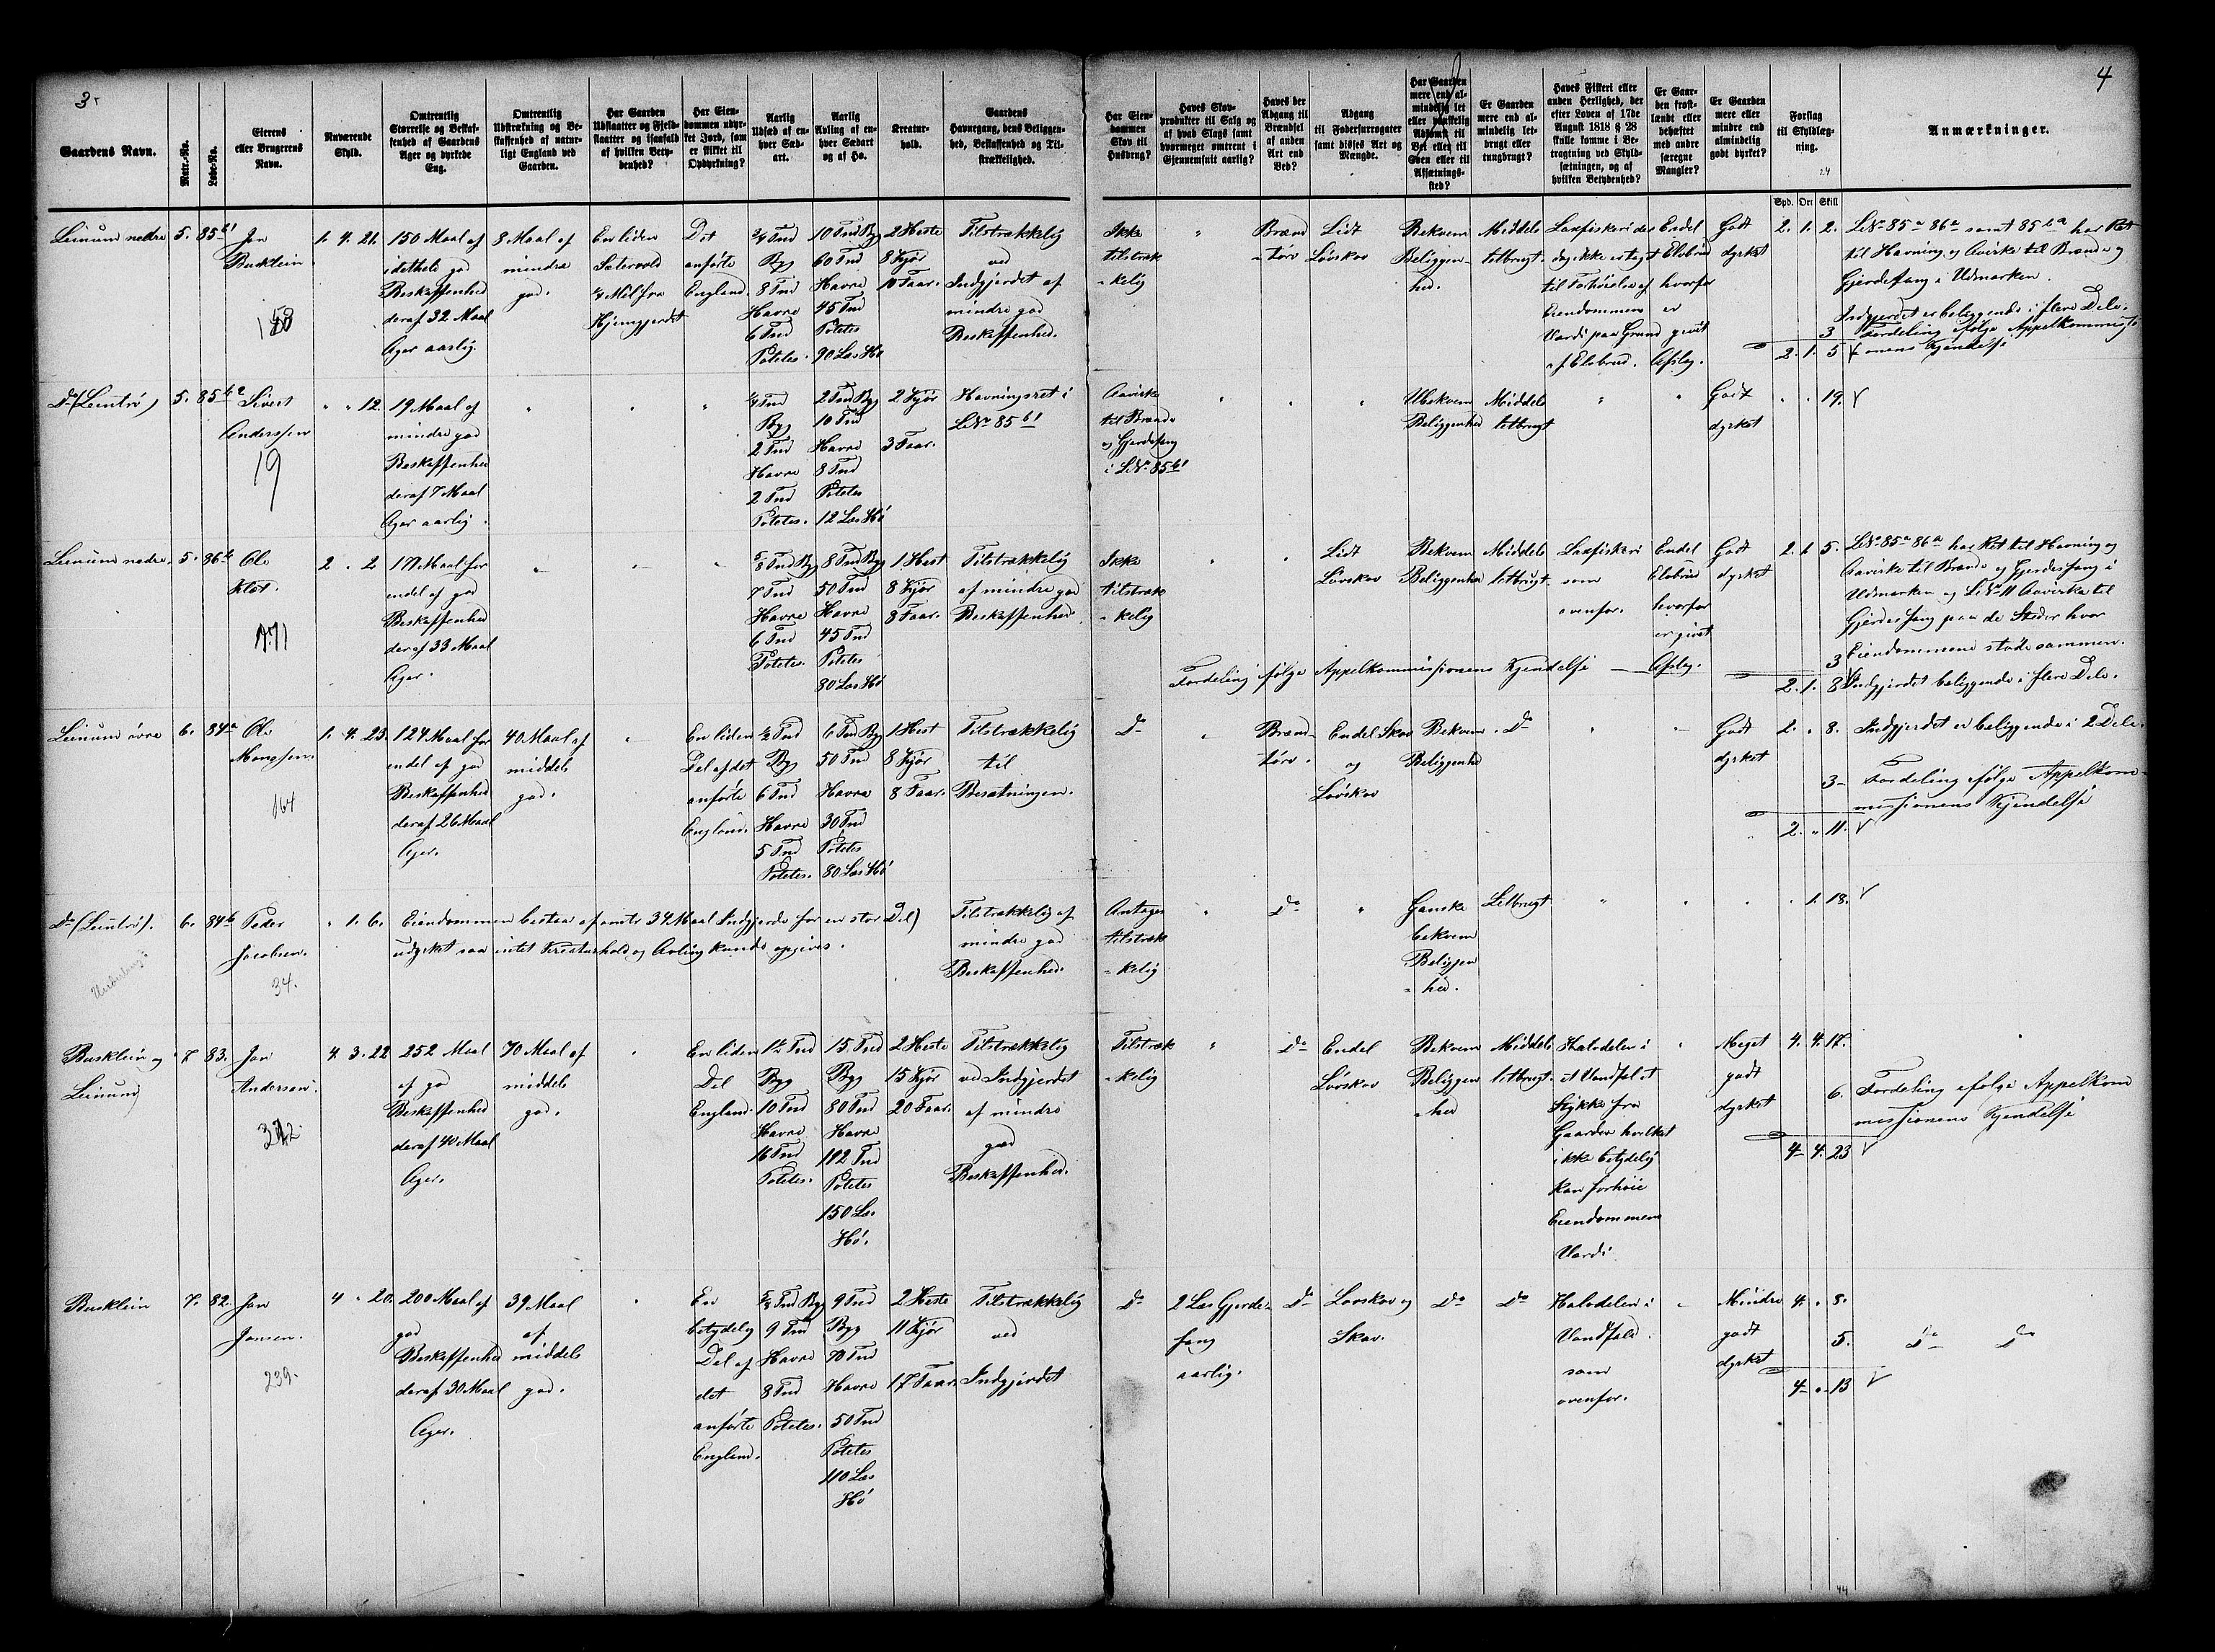 3
4
Gaardens Navn.
Matr.-No.
Løbe-No.
Eierens eller Brugerens Navn.
Nuværende Skyld.
Omtrentlig Størrelse og Beskaffenhed af Gaardens Ager og dyrkede Eng.
Omtrentlig Udstrækning og Beskaffenhed af naturligt England ved Gaarden.
Har Gaarden Udslaatter og Fjeldslaatter og isaafald af hvilken Betydenhed?
Har Eiendommen udyrket Jord, som er skikket til Opdyrkning?
Aarlig Udsæd af enhver Sædart.
Aarlig Avling af enhver Sædart og af Hø.
Kreaturhold.
Gaardens Havnegang, dens Beliggenhed, Beskaffenhed og Tilstrækkelighed.
Har Eiendommen Skov til Husbrug?
Haves Skovprodukter til Salg og af hvad Slags samt hvormeget omtrent i Gjennemsnit aarlig?
Haves der Adgang til Brændsel af anden Art end Ved?
Adgang til Fodersurrogater samt disses Art og Mængde.
Har Gaarden mere end almindelig let eller vanskelig Adkomst til Vei eller til Søen eller til Afsætningssted?
Er Gaarden mere end almindelig letbrugt eller tungbrugt?
Haves Fiskeri eller anden Herlighed, der efter Loven af 17de August 1818 § 28 skulle komme i Betragtning ved Skyldsætningen, og af hvilken Betydenhed?
Er Gaarden frostlændt eller behæftet med andre særegne Mangler?
Er Gaarden mere eller mindre end almindelig godt dyrket?
Forslag til Skyldlægning.
Spd. Ort Skill
Anmærkninger.
Leinum nedre 5. 85b1 Jon Busklein 1. 4. 21.
150 Maal af idethele god Beskaffenhed deraf 32 Maal Ager aarlig.
8 Maal af mindre god.
En liden Sætervold ¼ Mil fra Hjemgjerdet
Det anførte England.
¾ Tnd Byg 8 Tnd Havre 6 Tnd Poteter.
10 Tnd Byg 60 Tnd Havre 45 Tnd Poteter 90 Læs Hø
2 Heste 8 Kjør 10 Faar.
Tilstrækkelig ved Indgjerdet af mindre god Beskaffenhed.
Ikke tilstrækkelig
"
Brændtørv
Lidt Løvskov
Bekvem Beliggenhed.
Middels letbrugt.
Laxfiskeri der dog ikke er tagt til Forhøielse af Eiendommens Værdi paa Grund af Elvbrud.
Endel Elvbrud hvorfor er givet Afslag.
Godt dyrket
2. 1. 2.
3
2. 1. 5
LNo 85a 86a samt 85ba har Ret til Havning og Aavirke til Brænde og Gjerdefang i Udmarken.
Indgjerdet er beliggende i flere Dele.
Fordeling ifølge Appelkommissionens Kjendelse
Do (Leintrø) 5. 85b2 Sivert Anderssen " " 12.
19
19 Maal af mindre god Beskaffenhed deraf 7 Maal Ager aarlig.
¼ Tnd Byg 2 Tnd Havre 2 Tnd Poteter.
2 Tnd Byg 10 Tnd Havre 8 Tnd Poteter 12 Læs Hø
2 Kjør 3 Faar.
Havningsret i LNo 85b1
Aavirke til Brænde og Gjerdefang i LNo 85b1
Ubekvem Beliggenhed
Middels letbrugt
Godt dyrket
" " 19.
Leinum nedre 5. 86b Ole Klet. 2 " 2
171
171 Maal for endel af god Beskaffenhed deraf 33 Maal Ager.
⅝ Tnd Byg 7 Tnd Havre 6 Tnd Poteter.
8 Tnd Byg 50 Tnd Havre 45 Tnd Poteter 80 Læs Hø
1 Hest 8 Kjør 8 Faar.
Tilstrækkelig af mindre god Beskaffenhed
Ikke tilstrækkelig
Lidt Løvskov
Bekvem Beliggenhed
Middels letbrugt.
Laxfiskeri som ovenfor.
Endel Elvbrud hvorfor er givet Afslag.
Godt dyrket
2. 1. 5.
3
2. 1. 8
LNo 85a 86a har Ret til Havning og Aavirke til Brænde og Gjerdefang i Udmarken og LNo 11 Aavirke til Gjerdefang paa de Steder hvor Eiendommene støde sammen.
Indgjerdet beliggende i flere Dele.
Fordeling ifølge Appelkommissionens Kjendelse
Leinum øvre 6. 84a Ole Mongssen. 1. 4. 23.
164
124 Maal for endel af god Beskaffenhed deraf 26 Maal Ager.
40 Maal af middels god.
En liden Del af det anførte England.
½ Tnd Byg 6 Tnd Havre 5 Tnd Poteter.
6 Tnd Byg 50 Tnd Havre 30 Tnd Poteter 80 Læs Hø
1 Hest 8 Kjør 8 Faar.
Tilstrækkelig til Besætningen.
Do
Brændtørv.
Endel Skav og Løvskov
Bekvem Beliggenhed
Do
Godt dyrket
2. " 8.
3
2. " 11.
Indgjerdet er beliggende i 2 Dele.
Fordeling ifølge Appelkommissionens Kjendelse
Do (Leintrø). 6. 84b Peder Jacobsen. " 1. 6.
34.
Eiendommen bestaar af omtr 34 Maal Indgjerde for en stor Del udyrket saa intet Kreaturhold og Avling kunde opgives.
Tilstrækkelig af mindre god Beskaffenhed
Antages tilstrækkelig
Do
Ganske bekvem Beliggenhed.
Letbrugt
" 1. 18.
Busklein og Leinum 7 83. Jon Andersen. 4. 3. 22
252 Maal af god Beskaffenhed deraf 40 Maal Ager.
70 Maal af middels god.
En liden Del England.
1½ Tnd Byg 10 Tnd Havre 16 Tnd Poteter.
15 Tnd Byg 80 Tnd Havre 112 Tnd Poteter 150 Læs Hø.
2 Heste 15 Kjør 20 Faar.
Tilstrækkelig ved Indgjerdet af mindre god Beskaffenhed.
Tilstrækkelig
Do
Endel Løvskov
Bekvem Beliggenhed
Middels letbrugt.
Halvdelen i et Vandfal et Stykke fra Gaarden hvilket ikke betydelig kan forhøie Eiendommens Værdi
Meget godt dyrket
4. 4. 17.
6.
4 4. 23
Fordeling ifølge Appelkommissionens Kjendelse
Busklein 7. 82. Jon Jonsen. 4 " 20.
239.
200 Maal af god Beskaffenhed deraf 30 Maal Ager.
39 Maal af middels god.
En betydelig Del af det anførte England.
⅝ Tnd Byg 9 Tnd Havre 8 Tnd Poteter.
9 Tnd Byg 70 Tnd Havre 50 Tnd Poteter 110 Læs Hø
2 Heste 11 Kjør 17 Faar.
Tilstrækkelig ved Indgjerdet
Do
2 Læs Gjerdefang aarlig.
Do
Løvskov og Skav.
Do
Do
Halvdelen i Vandfald som ovenfor.
Mindre godt dyrket
4. " 8.
5.
4 " 13
Do Do